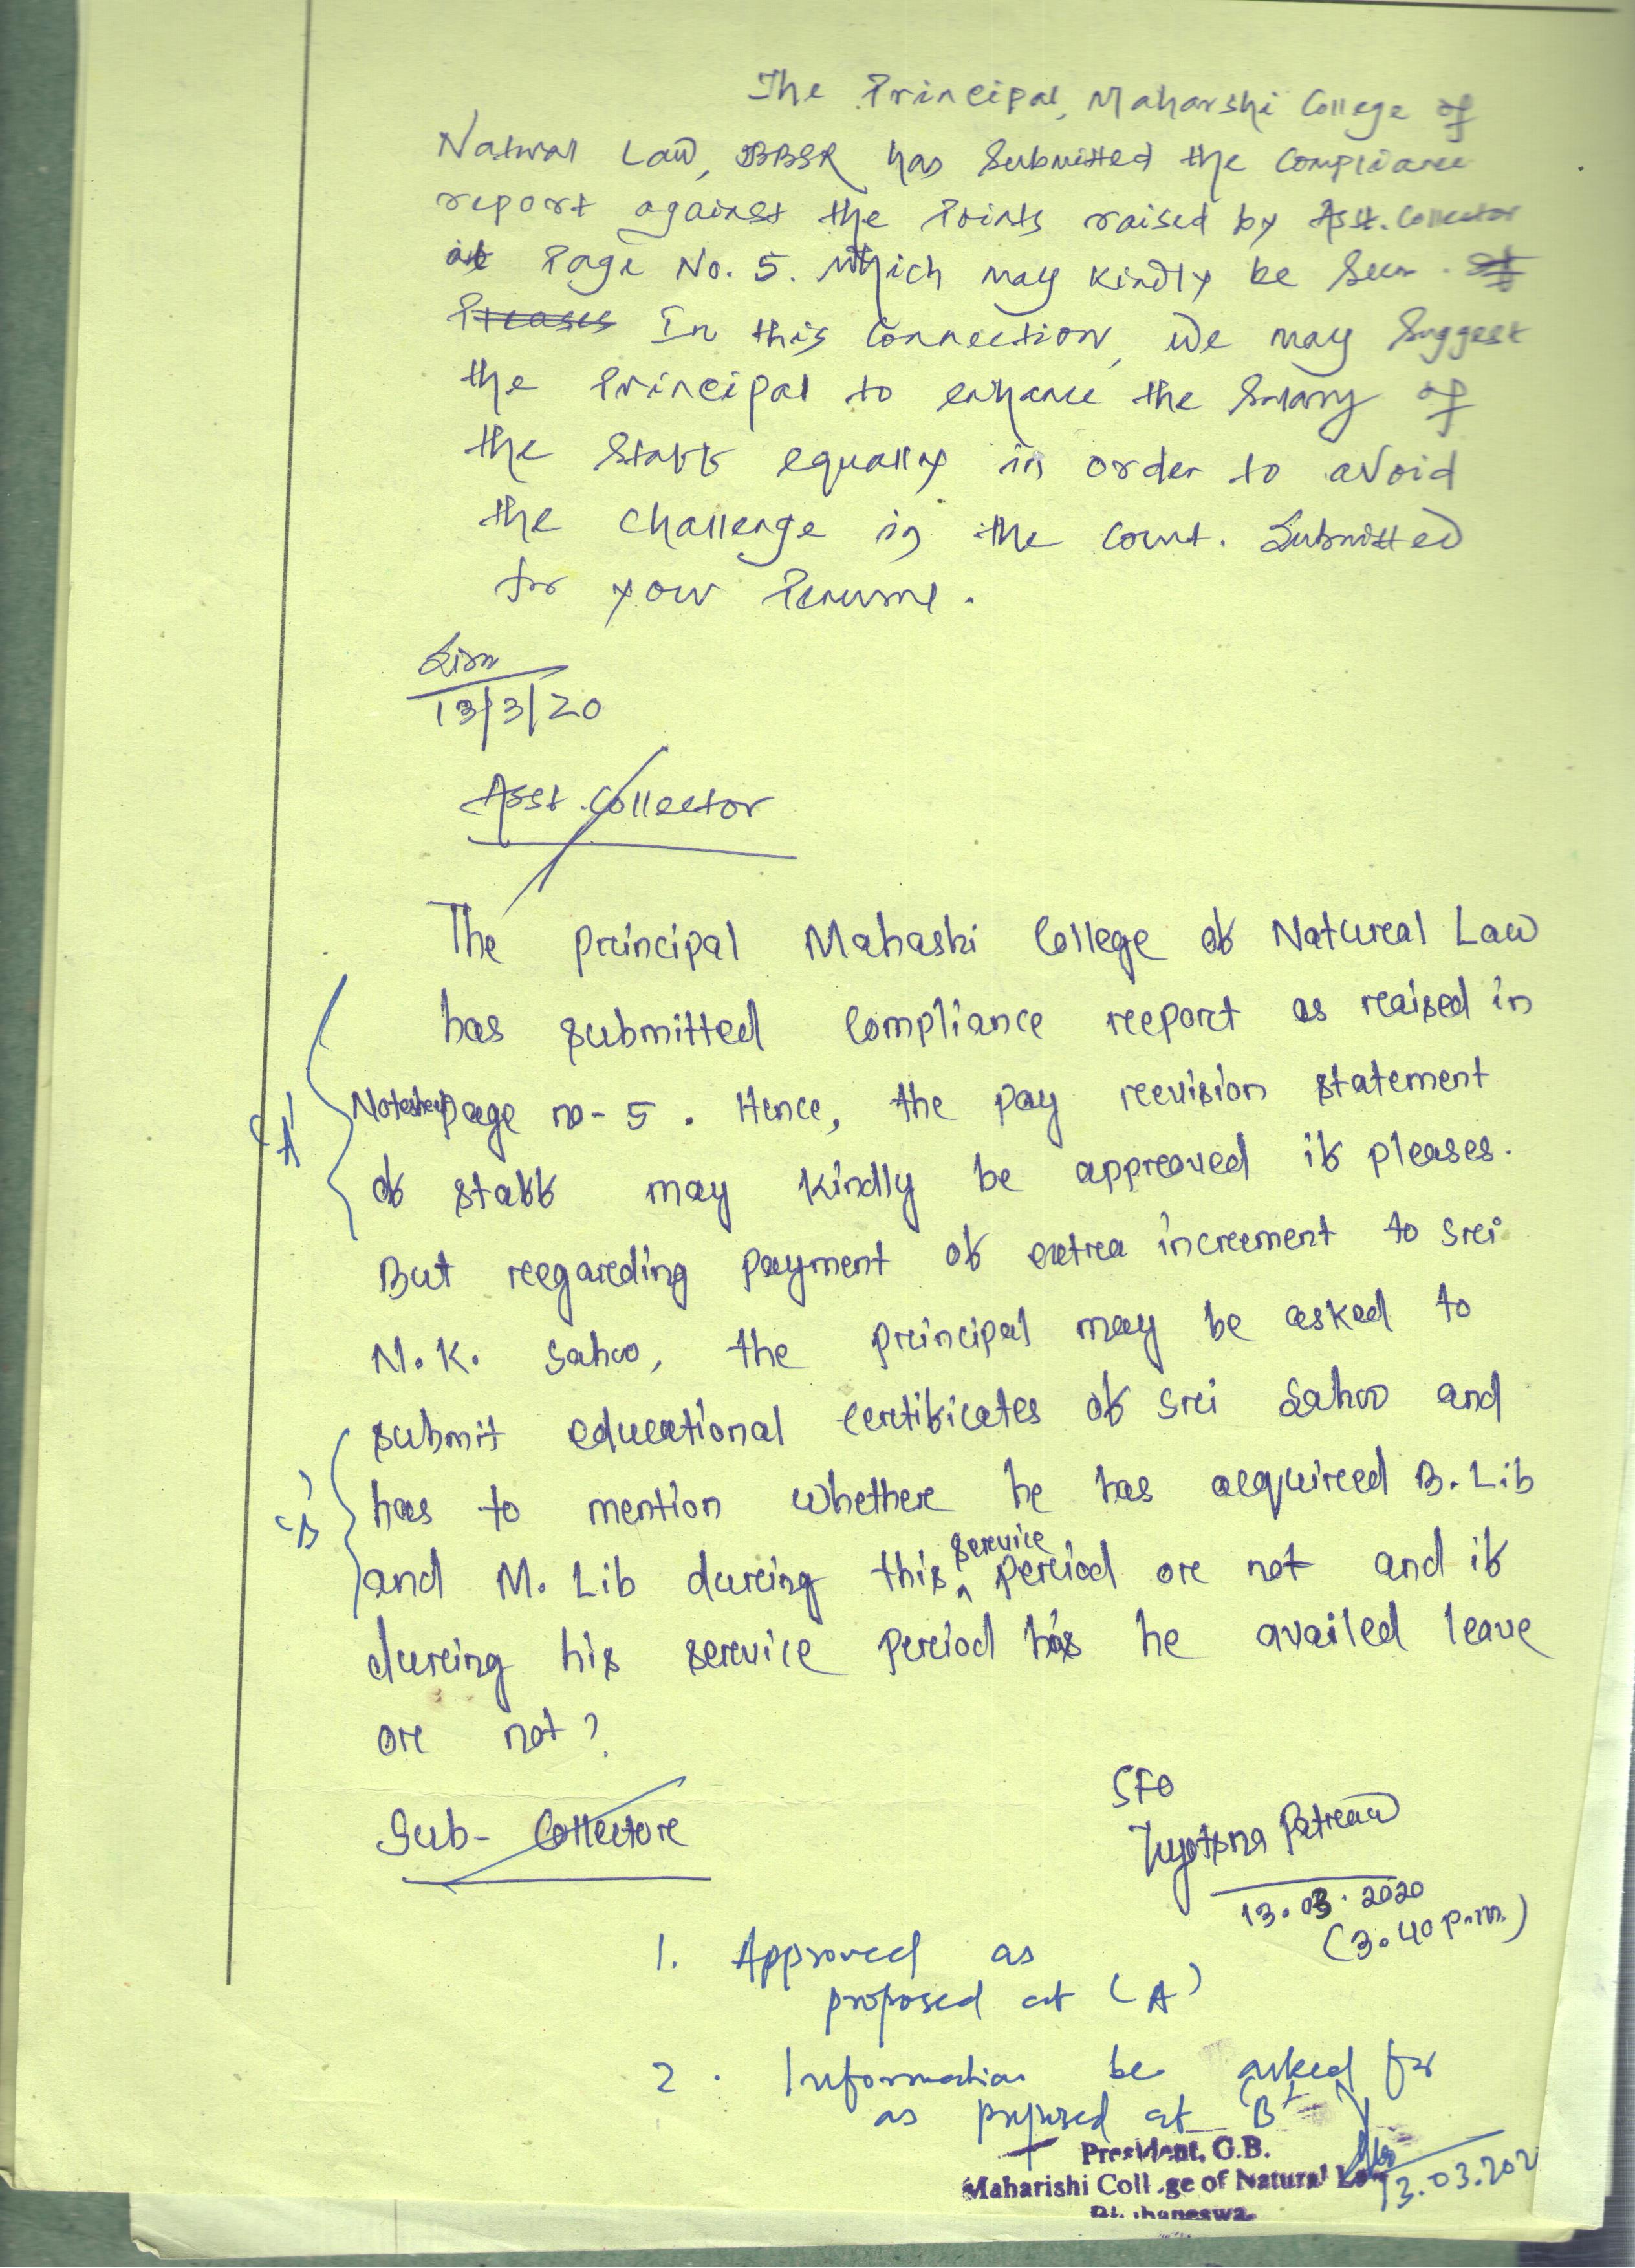 The Principal, Maharshi College of
Natural Law, BBSR has Submitted the Compliance
report against the Points raised by Asst. Collector
at Page No. 5. Which may kindly be Seen.
Pleases In this Connection, We may Suggest
the Principal to enhance the Salary of
the Staff equally in order to avoid
the Challenge in the Court. Submitted
for your Perusal.
13/3/20
Asst. Collector
The principal Mahashi College of Natural Law
has submitted compliance report as raised in
Notesheet page no-5. Hence, the pay revision statement
of staff may kindly be approved if pleases.
'A'
But regarding payment of extra increment to Sri
M.K. Sahoo, the principal may be asked to
submit educational certificates of Sri Sahoo and
has to mention whether he has acquired B.Lib
'B'
and M.Lib during this service period or not and if
during his service period has he availed leave
or not?
Sub-Collector
SFO
Jyotsna Patra
13.03.2020
(3.40 p.m.)
1. Approved as
proposed at (A)
2. Information be asked for
as proposed at 'B'
President, G.B.
Maharishi Coll.ge of Natural Law
13.03.202